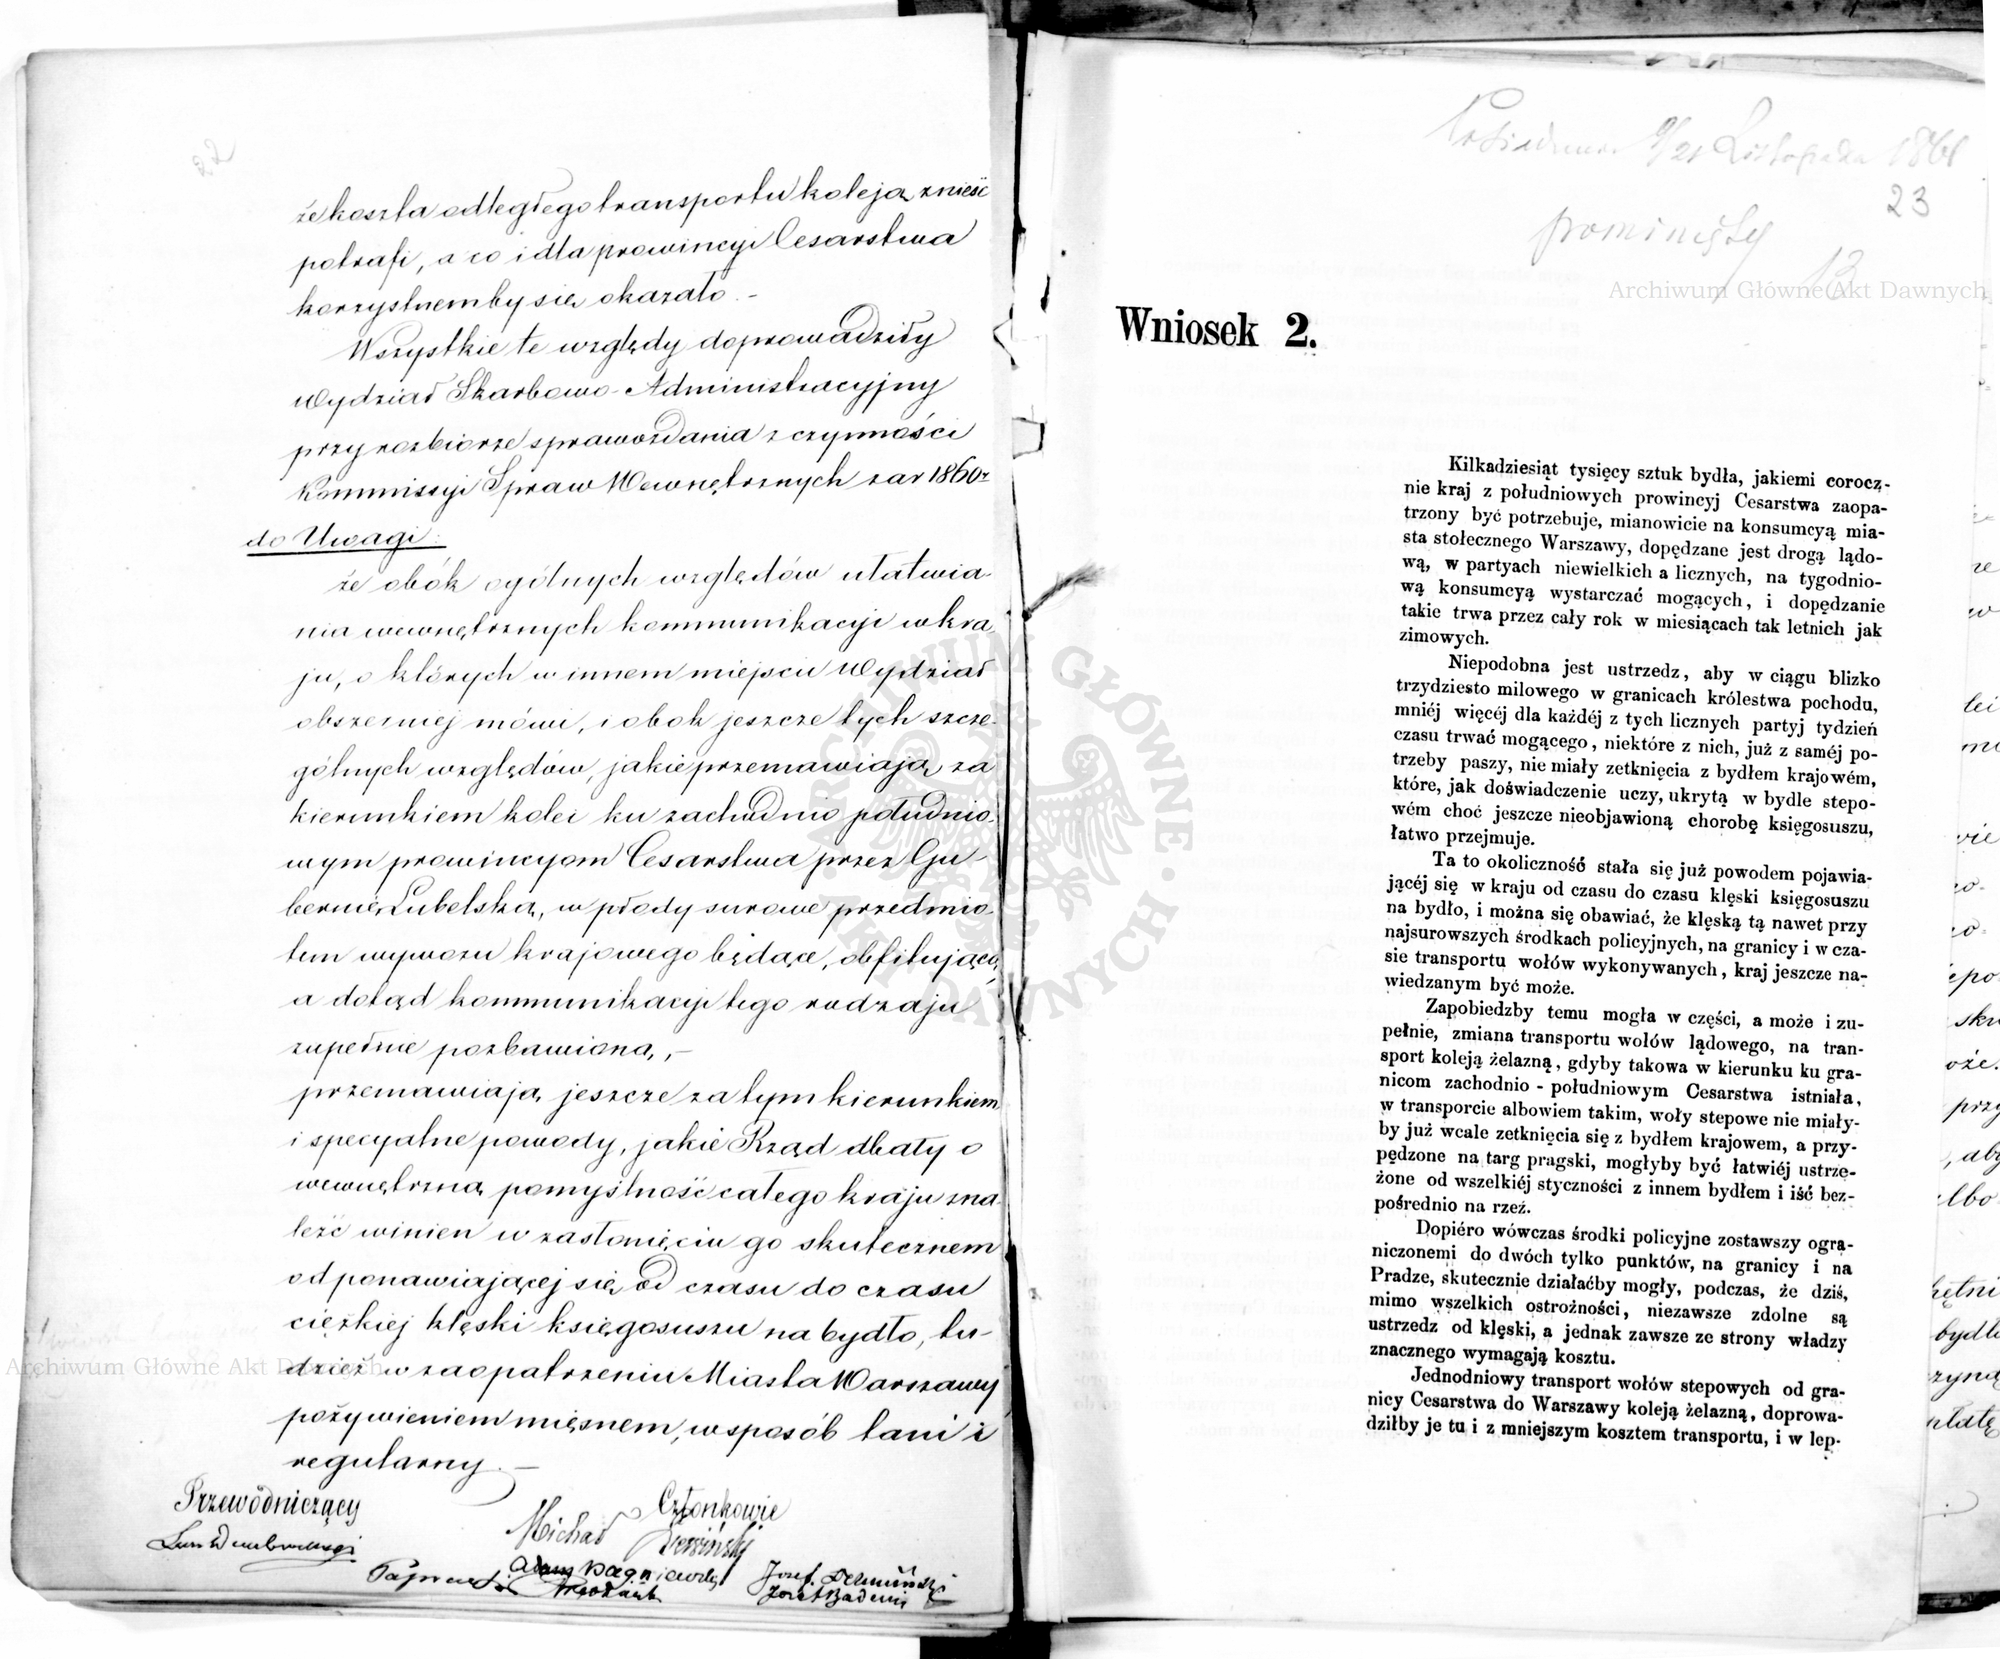 22
że koszta odległego transportu koleją znieść
potrafi, a co i dla prowincyi Cesarstwa
korzystnem by się okazało. -
Wszystkie te względy doprowadziły
Wydział Skarbowo-Administracyjny
przy rozbiorze sprawozdania z czynności
Kommissyi Spraw Wewnętrznych za r 1860r
do Uwagi:
że obók ogólnych względów ułatwia-
nia wewnętrznych kommunikacyi w kra-
ju, o których w innem miejscu Wydział
obszerniej mówi, i obok jeszcze tych szcze-
gólnych względów, jakie przemawiają za
kierunkiem kolei ku zachodnio południo-
wym prowincyom Cesarstwa przez Gu-
bernię Lubelską, w płody surowe przedmio-
tem wywozu krajowego będące, obfitującą,
a dotąd kommunikacyi tego rodzaju
zupełnie pozbawioną, -
przemawiają jeszcze za tym kierunkiem
i specyalne powody, jakie Rząd dbały o
wewnętrzną pomyślność całego kraju zna-
leźć winien w zasłonięciu go skutecznem
od ponawiającej się od czasu do czasu
ciężkiej klęski księgosuszu na bydło, tu-
dzież w zaopatrzeniu Miasta Warszawy
pożywieniem mięsnem, w sposób tani i
regularny. -
Przewodniczący
Członkowie
Michał
Józef Badeni
Posiedzenie 9/21 Listopada 1861
23
prominięty
13
Wniosek 2.
Kilkadziesiąt tysięcy sztuk bydła, jakiemi corocz-
nie kraj z południowych prowincyj Cesarstwa zaopa-
trzony być potrzebuje, mianowicie na konsumcyą mia-
sta stołecznego Warszawy, dopędzane jest drogą lądo-
wą, w partyach niewielkich a licznych, na tygodnio-
wą konsumcyą wystarczać mogących, i dopędzanie
takie trwa przez cały rok w miesiącach tak letnich jak
zimowych.
Niepodobna jest ustrzedz, aby w ciągu blizko
trzydziesto milowego w granicach królestwa pochodu,
mniéj więcéj dla każdéj z tych licznych partyj tydzień
czasu trwać mogącego, niektóre z nich, już z saméj po-
trzeby paszy, nie miały zetknięcia z bydłem krajowém,
które, jak doświadczenie uczy, ukrytą w bydle stepo-
wém choć jeszcze nieobjawioną chorobę księgosuszu,
łatwo przejmuje.
Ta to okoliczność stała się już powodem pojawia-
jącéj się w kraju od czasu do czasu klęski księgosuszu
na bydło, i można się obawiać, że klęską tą nawet przy
najsurowszych środkach policyjnych, na granicy i w cza-
sie transportu wołów wykonywanych, kraj jeszcze na-
wiedzanym być może.
Zapobiedzby temu mogła w części, a może i zu-
pełnie, zmiana transportu wołów lądowego, na tran-
sport koleją żelazną, gdyby takowa w kierunku ku gra-
nicom zachodnio - południowym Cesarstwa istniała,
w transporcie albowiem takim, woły stepowe nie miały-
by już wcale zetknięcia się z bydłem krajowem, a przy-
pędzone na targ pragski, mogłyby być łatwiéj ustrze-
żone od wszelkiéj styczności z innem bydłem i iść bez-
pośrednio na rzeź.
Dopiéro wówczas środki policyjne zostawszy ogra-
niczonemi do dwóch tylko punktów, na granicy i na
Pradze, skutecznie działaćby mogły, podczas, że dziś,
mimo wszelkich ostrożności, niezawsze zdolne są
ustrzedz od klęski, a jednak zawsze ze strony władzy
znacznego wymagają kosztu.
Jednodniowy transport wołów stepowych od gra-
nicy Cesarstwa do Warszawy koleją żelazną, doprowa-
dziłby je tu i z mniejszym kosztem transportu, i w lep-
Archiwum Główne Akt Dawnych
Archiwum Główne Akt Dawnych
ARCHIWUM GŁÓWNE AKT DAWNYCH